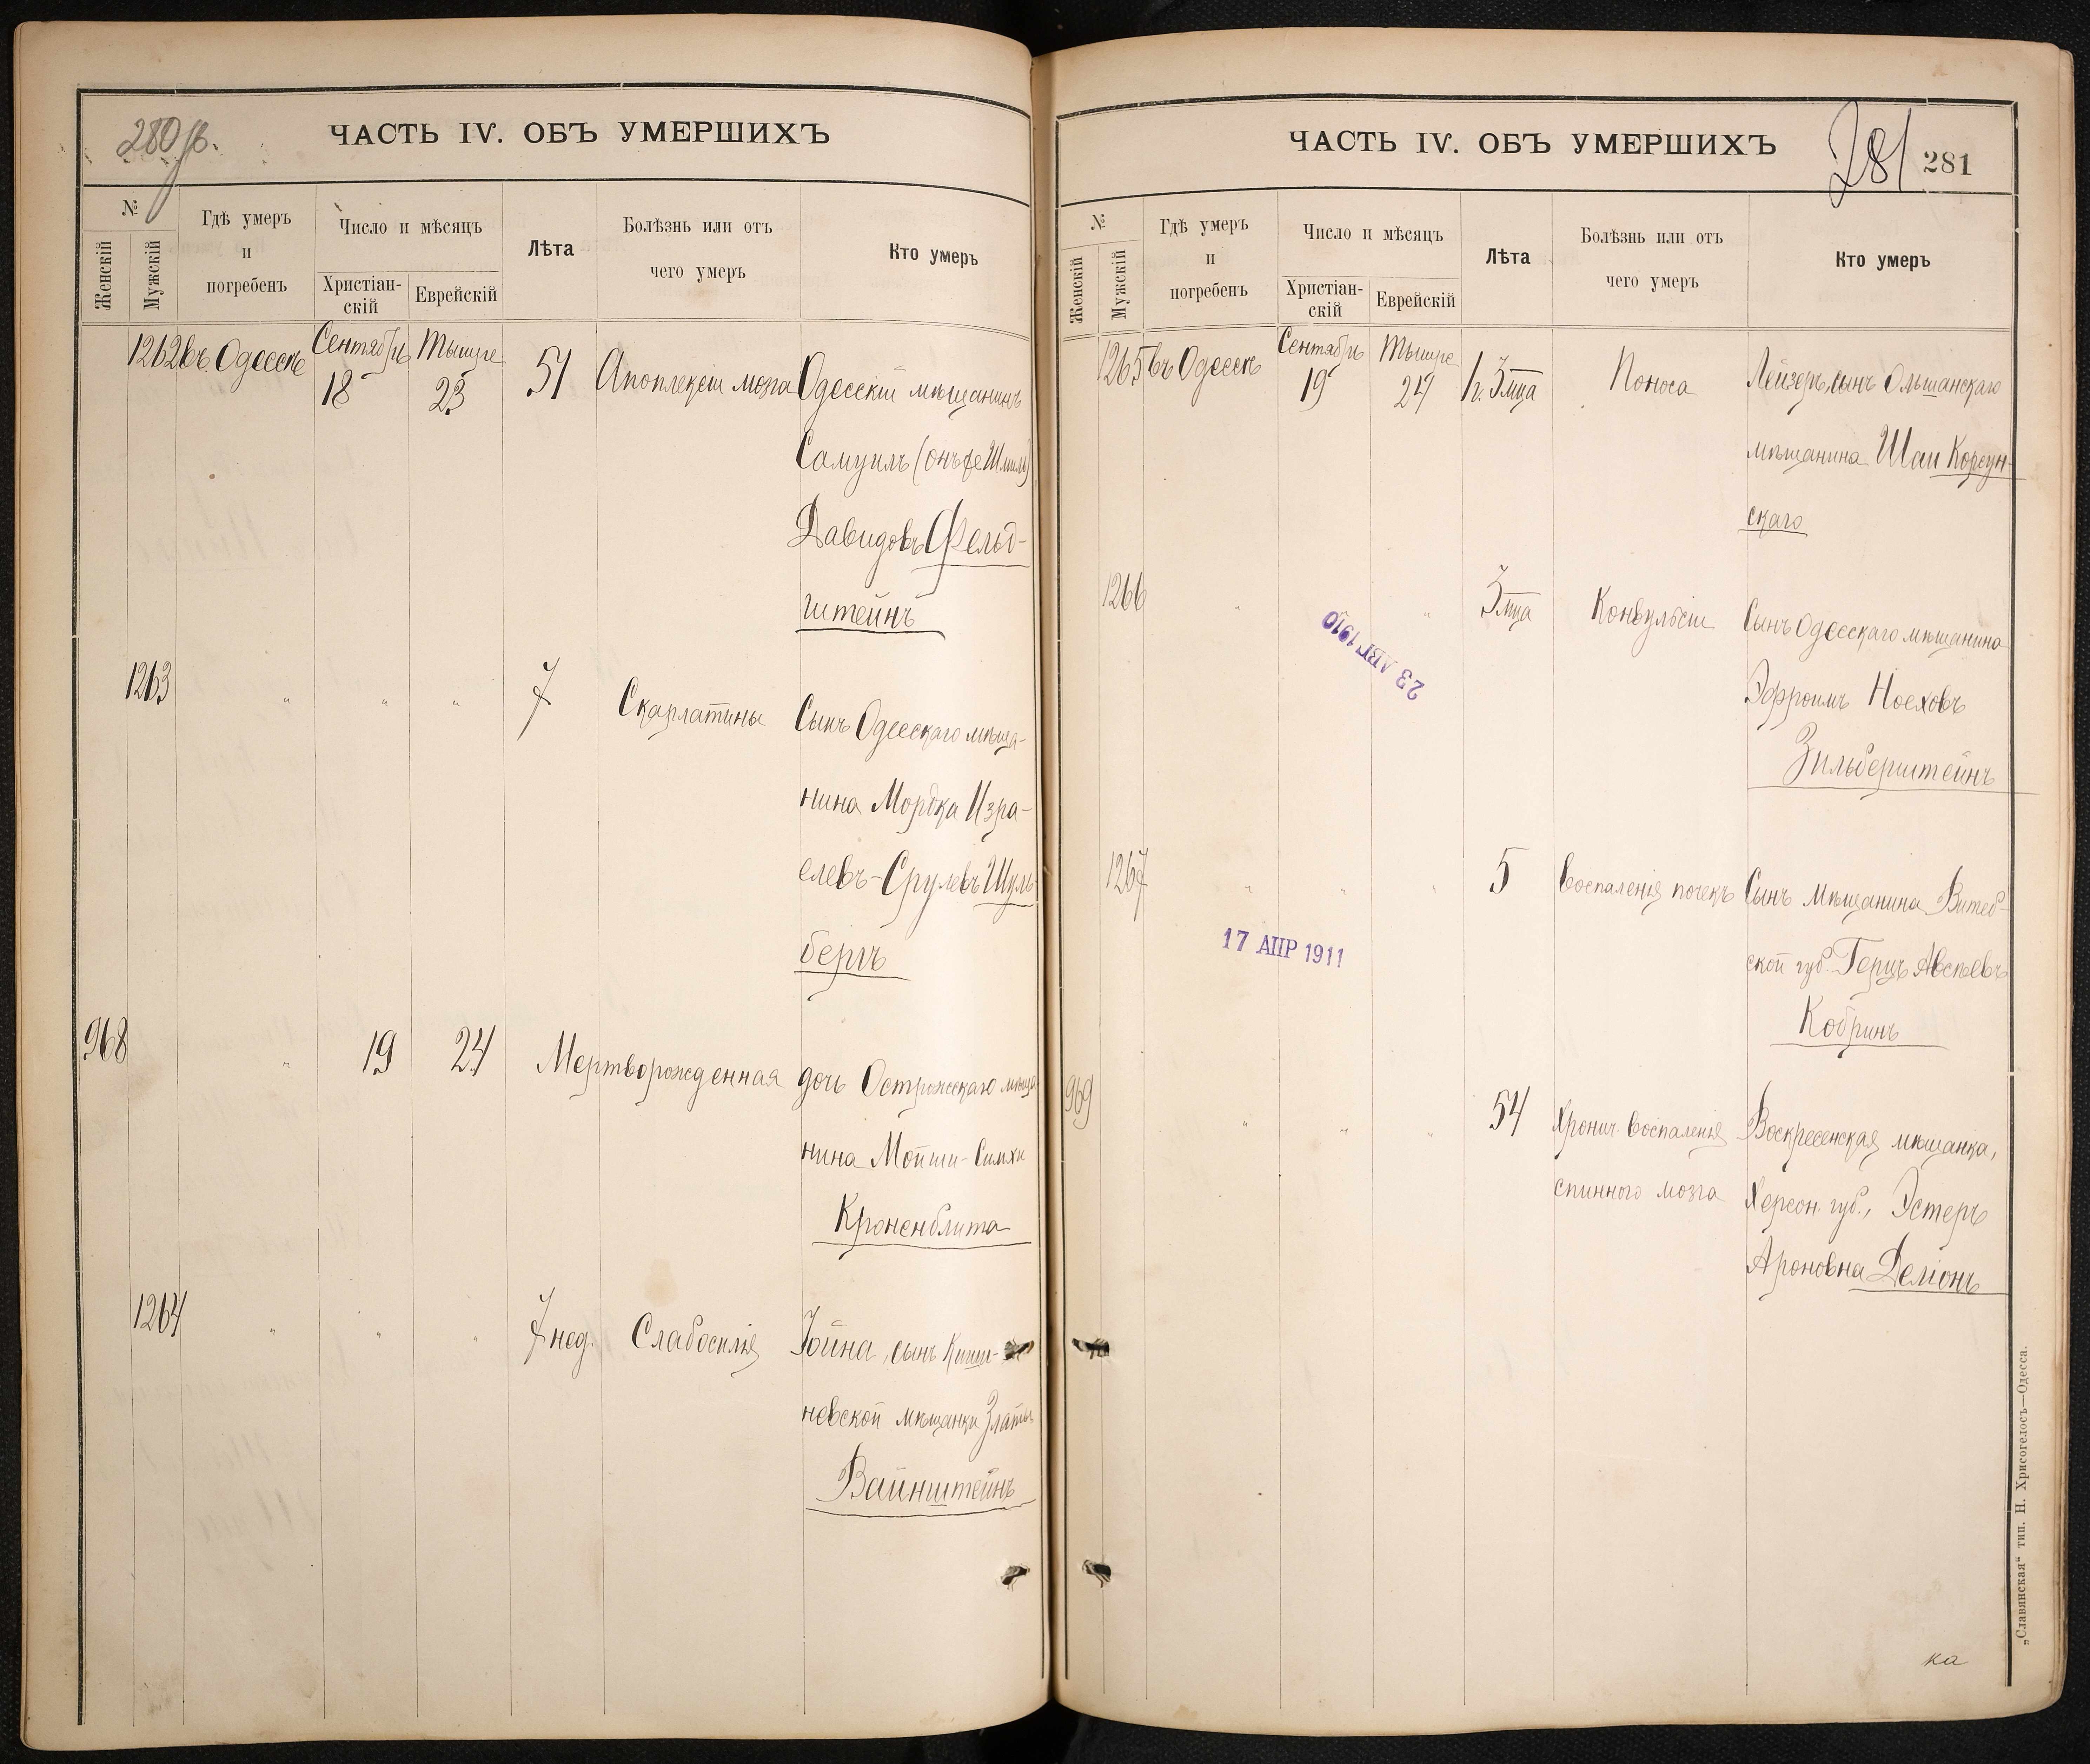 280 об.
ЧАСТЬ IV. ОБЪ УМЕРШИХЪ
№
Женскій
Мужскій
Гдѣ умеръ
и
погребенъ
Число и мѣсяцъ
Христіан-
скій
Еврейскій
Лѣта
Болѣзнь или отъ
чего умеръ
Кто умеръ
1262 въ Одессѣ Сентябрь 18 Тышре 23 51 Апоплексіи мозга Одесскій мѣщанинъ
Самуилъ (онъ же Шмиль)
Давидовъ Фельд-
штейнъ
1263 " " " 7 Скарлатины Сынъ Одесскаго мѣща-
нина Мордка Изра-
елевъ-Срулевъ Шуль-
бергъ
968 " 19 24 Мертворожденная дочь Острожскаго мѣща-
нина Мойши-Симхи
Кроненблита
1264 " " " 7 нед. Слабосилія Іойна, сынъ Киши-
невской мѣщанки Златы
Вайнштейнъ
ЧАСТЬ IV. ОБЪ УМЕРШИХЪ
281
281
№
Женскій
Мужскій
Гдѣ умеръ
и
погребенъ
Число и мѣсяцъ
Христіан-
скій
Еврейскій
Лѣта
Болѣзнь или отъ
чего умеръ
Кто умеръ
1265 въ Одессѣ Сентябрь 19 Тышре 24 3 мца Поноса Лейзеръ, сынъ Ольшанскаго
мѣщанина Шаи Корсун-
скаго
1266 " " 3 мца Конвульсіи Сынъ Одесскаго мѣщанина
23 АВГ 1910
Эфроимъ Ноеховъ
Зильберштейнъ
1267 " " " 5 Воспаленія почекъ Сынъ мѣщанина Витеб-
17 АПР 1911
ской губ. Герцъ Авсѣевъ
Кобринъ
969 " " " 54 Хронич. воспаленія Воскресенская мѣщанка,
спинного мозга Херсон. губ., Эстеръ
Ароновна Деліонъ
„Славянская“ тип. Н. Хрисогелосъ—Одесса.
ка